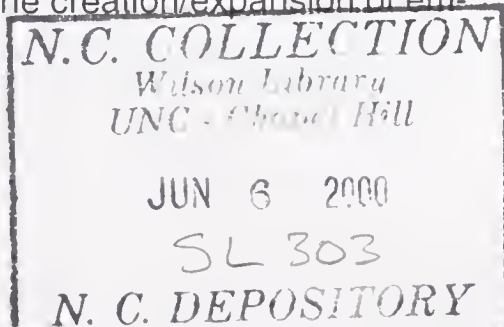 he creation/expansion of em-
N.C. COLLECTION
Wilson Library
UNC - Chapel Hill
JUN 6 2000
SL 303
N. C. DEPOSITORY